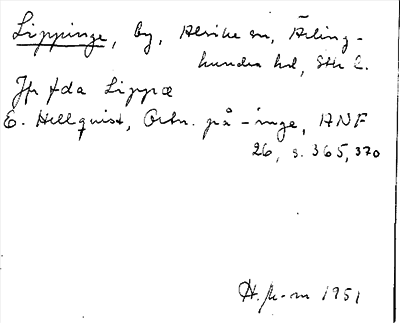 Lippinge, by, Alsike sn, Ärling-
hundra hd, Sthl l.
Jfr fda Lippæ
E. Hellquist, Ortn. på -inge, ANF
26, s. 365, 370
1951